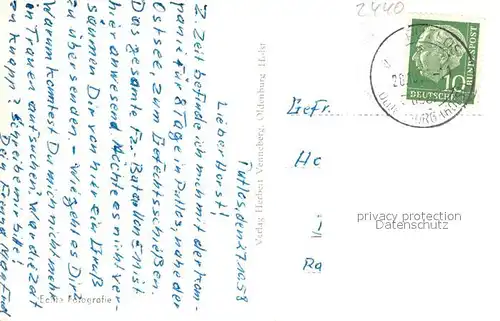 2440
Putlos, den 27.10.58
Lieber Horst!
Z. Zeit befinde ich mich mit der Kom-
panie für 8 Tage in Putlos, nahe der
Ostsee, zum Gefechtsschießen.
Das gesamte Fz-Bataillon ist
hier anwesend. Möchte es nicht ver-
säumen Dir von hier ein Gruß
zu übersenden. – Wie geht es Dir?
Warum konntest Du mich nicht mehr
in Trauen aufsuchen? War die Zeit
zu knapp? Schreibe mir bitte!
Dein Freund Manfred
Echte Fotografie
Verlag Herbert Venneberg, Oldenburg Holst
10
DEUTSCHE BUNDESPOST
Gefr.
Hc
i
Ra
privacy protection
Datenschutz